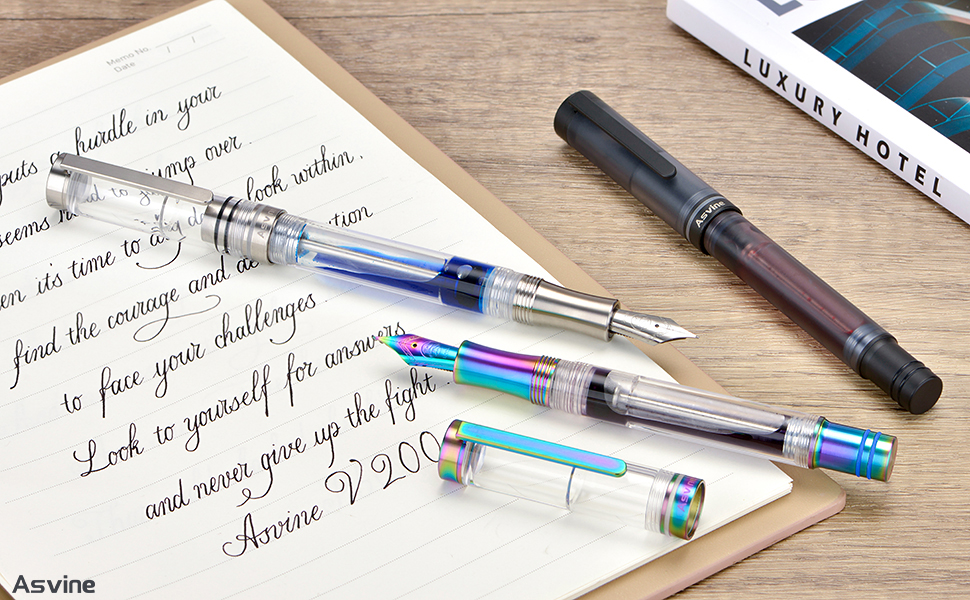 Memo No.
Date / /
puts a hurdle in your
seems to jump over.
en it's time to dig deep look within,
find the courage and de tion
to face your challenges.
Look to yourself for answers
and never give up the fight.
Asvine V200
Asvine
LUXURY HOTEL
Asvine